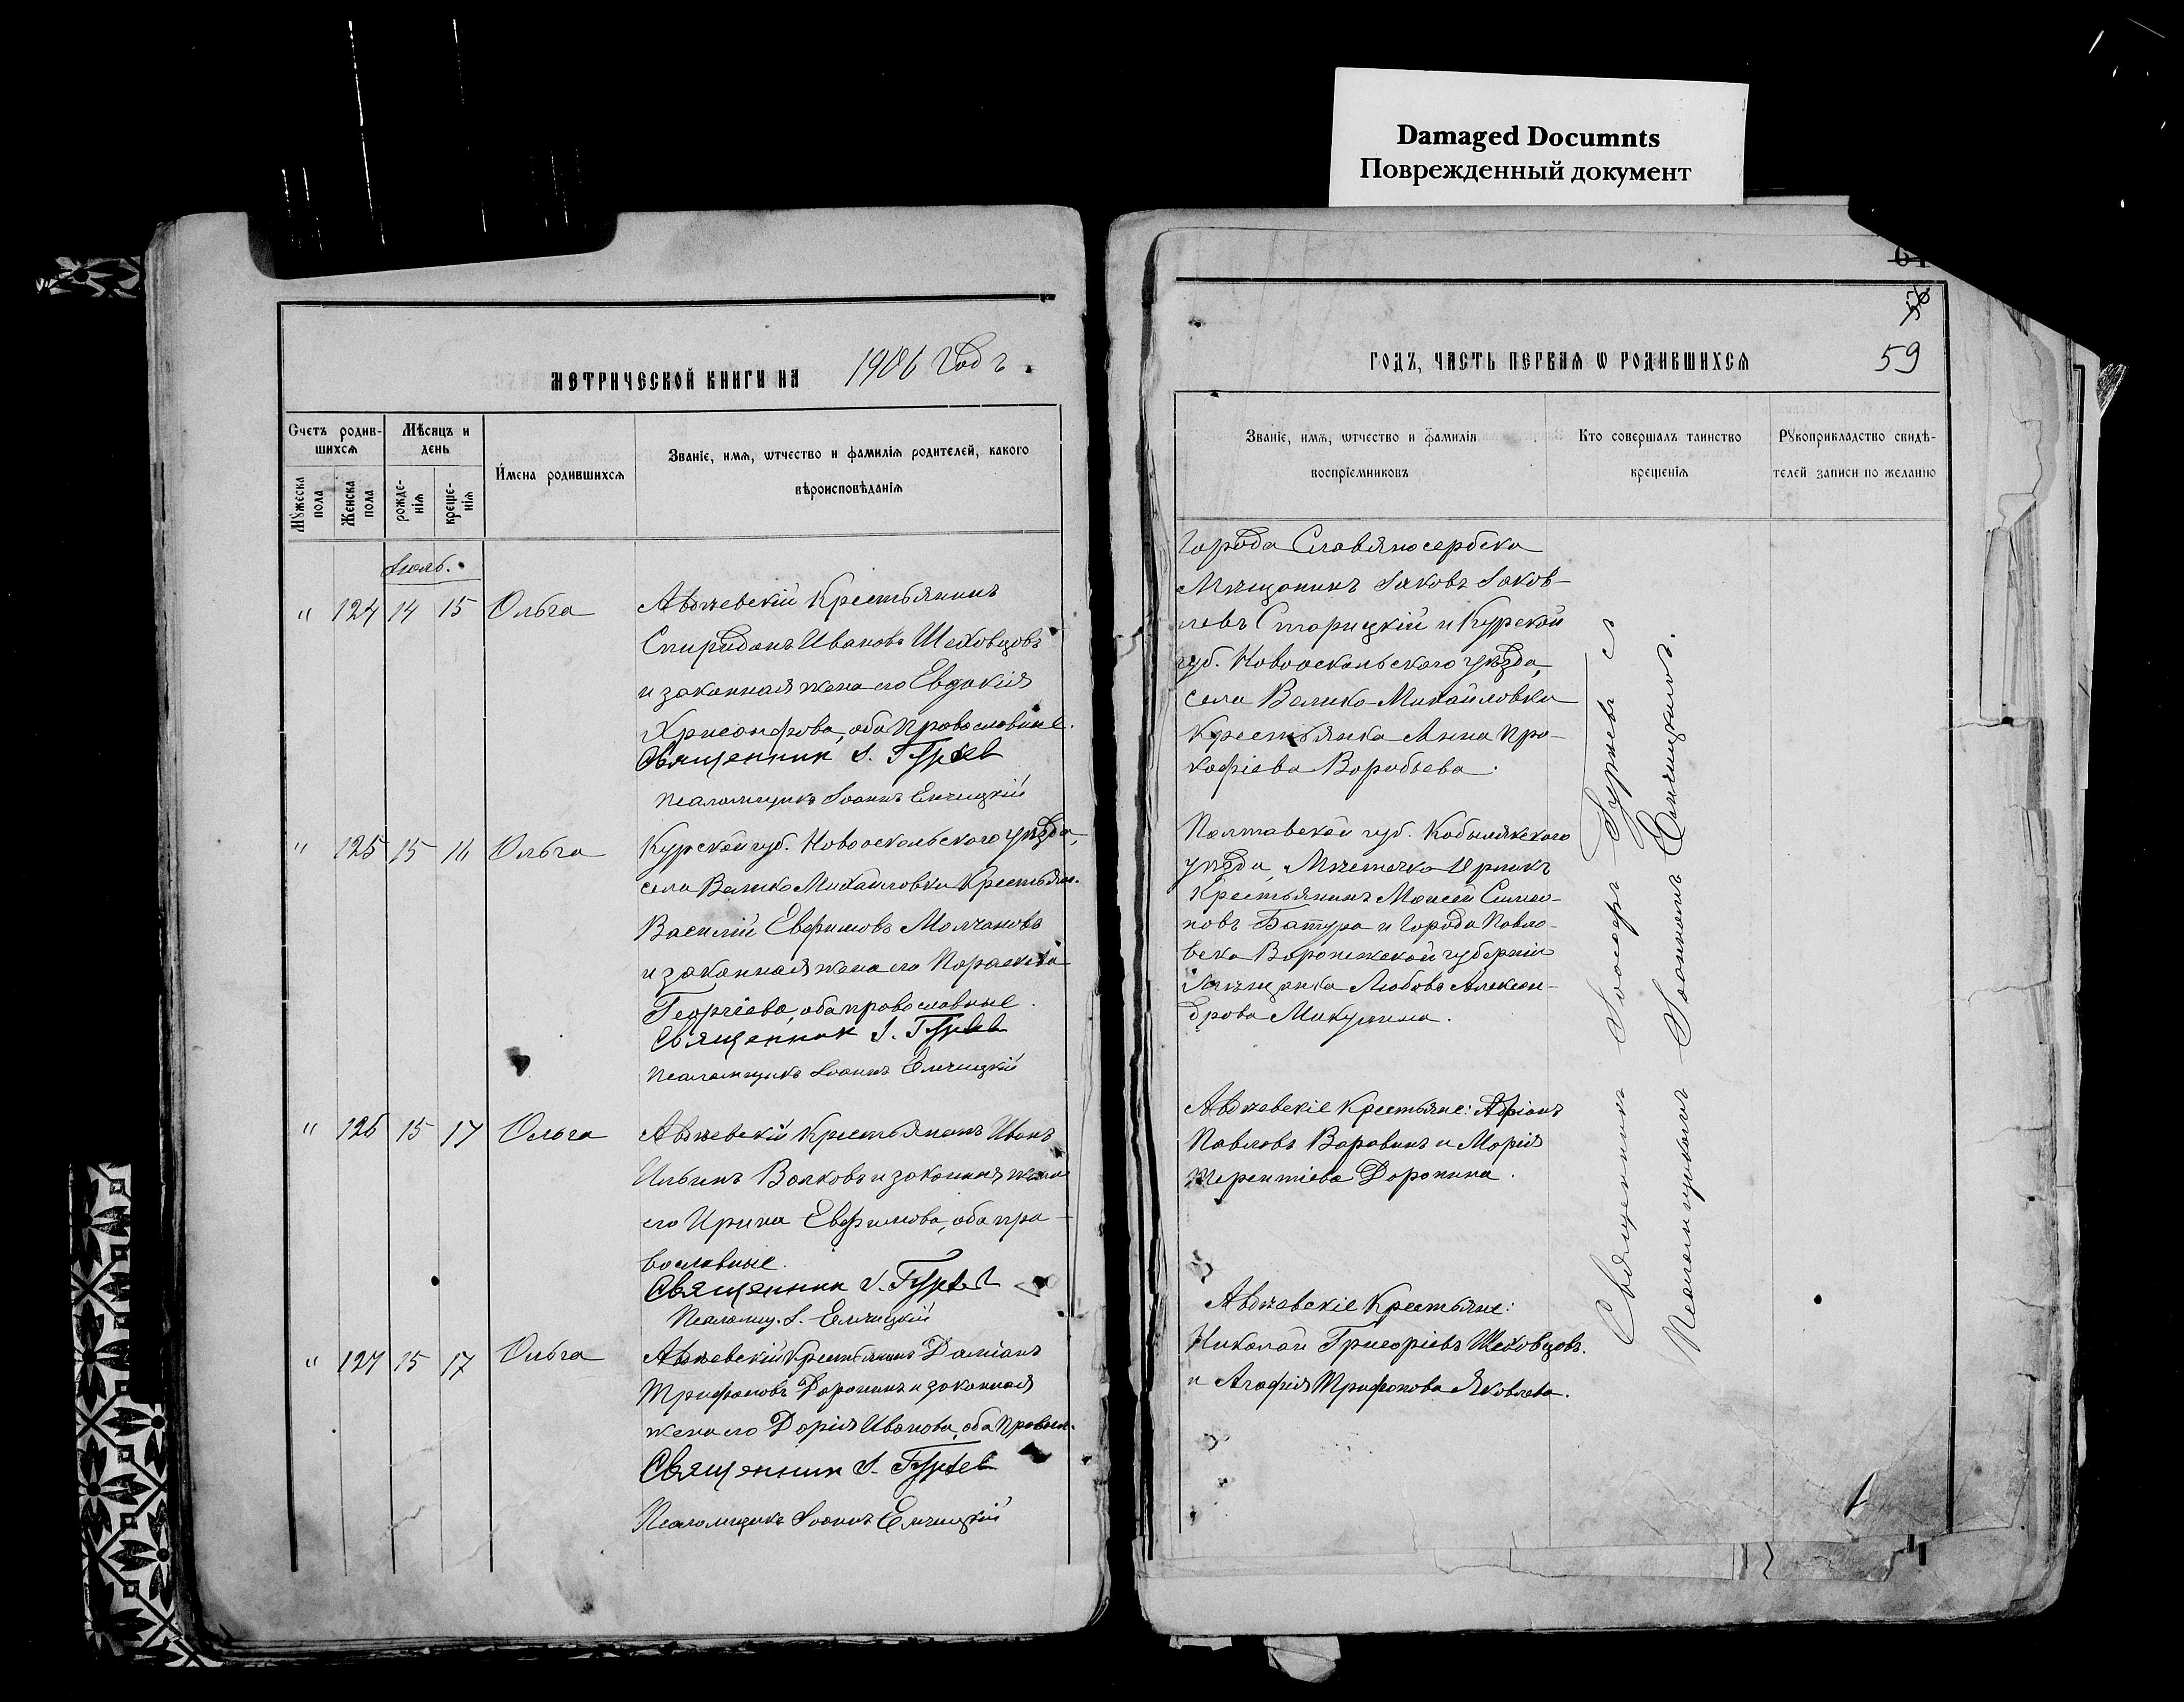 Damaged Documnts
Поврежденный документ
МЕТРИЧЕСКОЙ КНИГИ НА 1906 годъ.
Счетъ родив-
шихся
Мѣсяцъ и
день
Имена родившихся
Званіе, имя, ѿтчество и фамилія родителей, какого
вѣроисповѣданія
Мужеска
пола
Женска
пола
рожде-
нія
креще-
нія
Іюль.
" 124 14 15 Ольга
Авдѣевскій Крестьянинъ
Спиридонъ Ивановъ Шеховцовъ
и законная жена его Евдокія
Хрисанфова, оба православные.
Священник І. Гурьев
Псаломщикъ Іоаннъ Емчицкій
" 125 15 16 Ольга
Курской губ. Новооскольского уѣзда,
села Велико Михайловки Крестьян.
Василій Евфимовъ Молчановъ
и законная жена его Параскева
Георгіева, оба православные.
Священник І. Гурьев
Псаломщикъ Іоаннъ Емчицкій
" 126 15 17 Ольга
Авдѣевскій Крестьянинъ Иванъ
Ильинъ Волковъ и законная жена
его Ирина Евфимова, оба пра-
вославные.
Священник І. Гурьев
Псаломщ. І. Емчицкій
" 127 15 17 Ольга
Авдѣевскій Крестьянинъ Даміанъ
Трифоновъ Доронинъ и законная
жена его Дарія Иванова, оба правосл.
Священник І. Гурьев
Псаломщикъ Іоаннъ Емчицкій
59
ГОДЪ, ЧАСТЬ ПЕРВАЯ Ѡ РОДИВШИХСЯ
Званіе, имя, ѿтчество и фамилія
воспріемниковъ
Кто совершалъ таинство
крещенія
Рукоприкладство свидѣ-
телей записи по желанію
Города Славяносербска
Мѣщанинъ Іаковъ Іаков-
левъ Старицкій и Курской
губ. Новооскольского уѣзда,
села Велико-Михайловки
Крестьянка Анна Про-
кофіева Воробьева.
Полтавской губ. Кобылякского
уѣзда, Мѣстечка
Крестьянинъ Моисей Симео-
новъ Батура и Города Павло-
вска Воронежской губерніи
Мѣщанка Любовь Алексан-
дрова Микулина.
Авдѣевскіе Крестьяне: Адріанъ
Павловъ Воровинъ и Марія
Терентіева Доронина.
Авдѣевскіе Крестьяне:
Николай Григоріевъ Шеховцовъ.
и Агафія Трифонова Яковлева.
Священникъ Іосифъ Гурьевъ съ
Псаломщикомъ Іоанномъ Емчицкимъ.